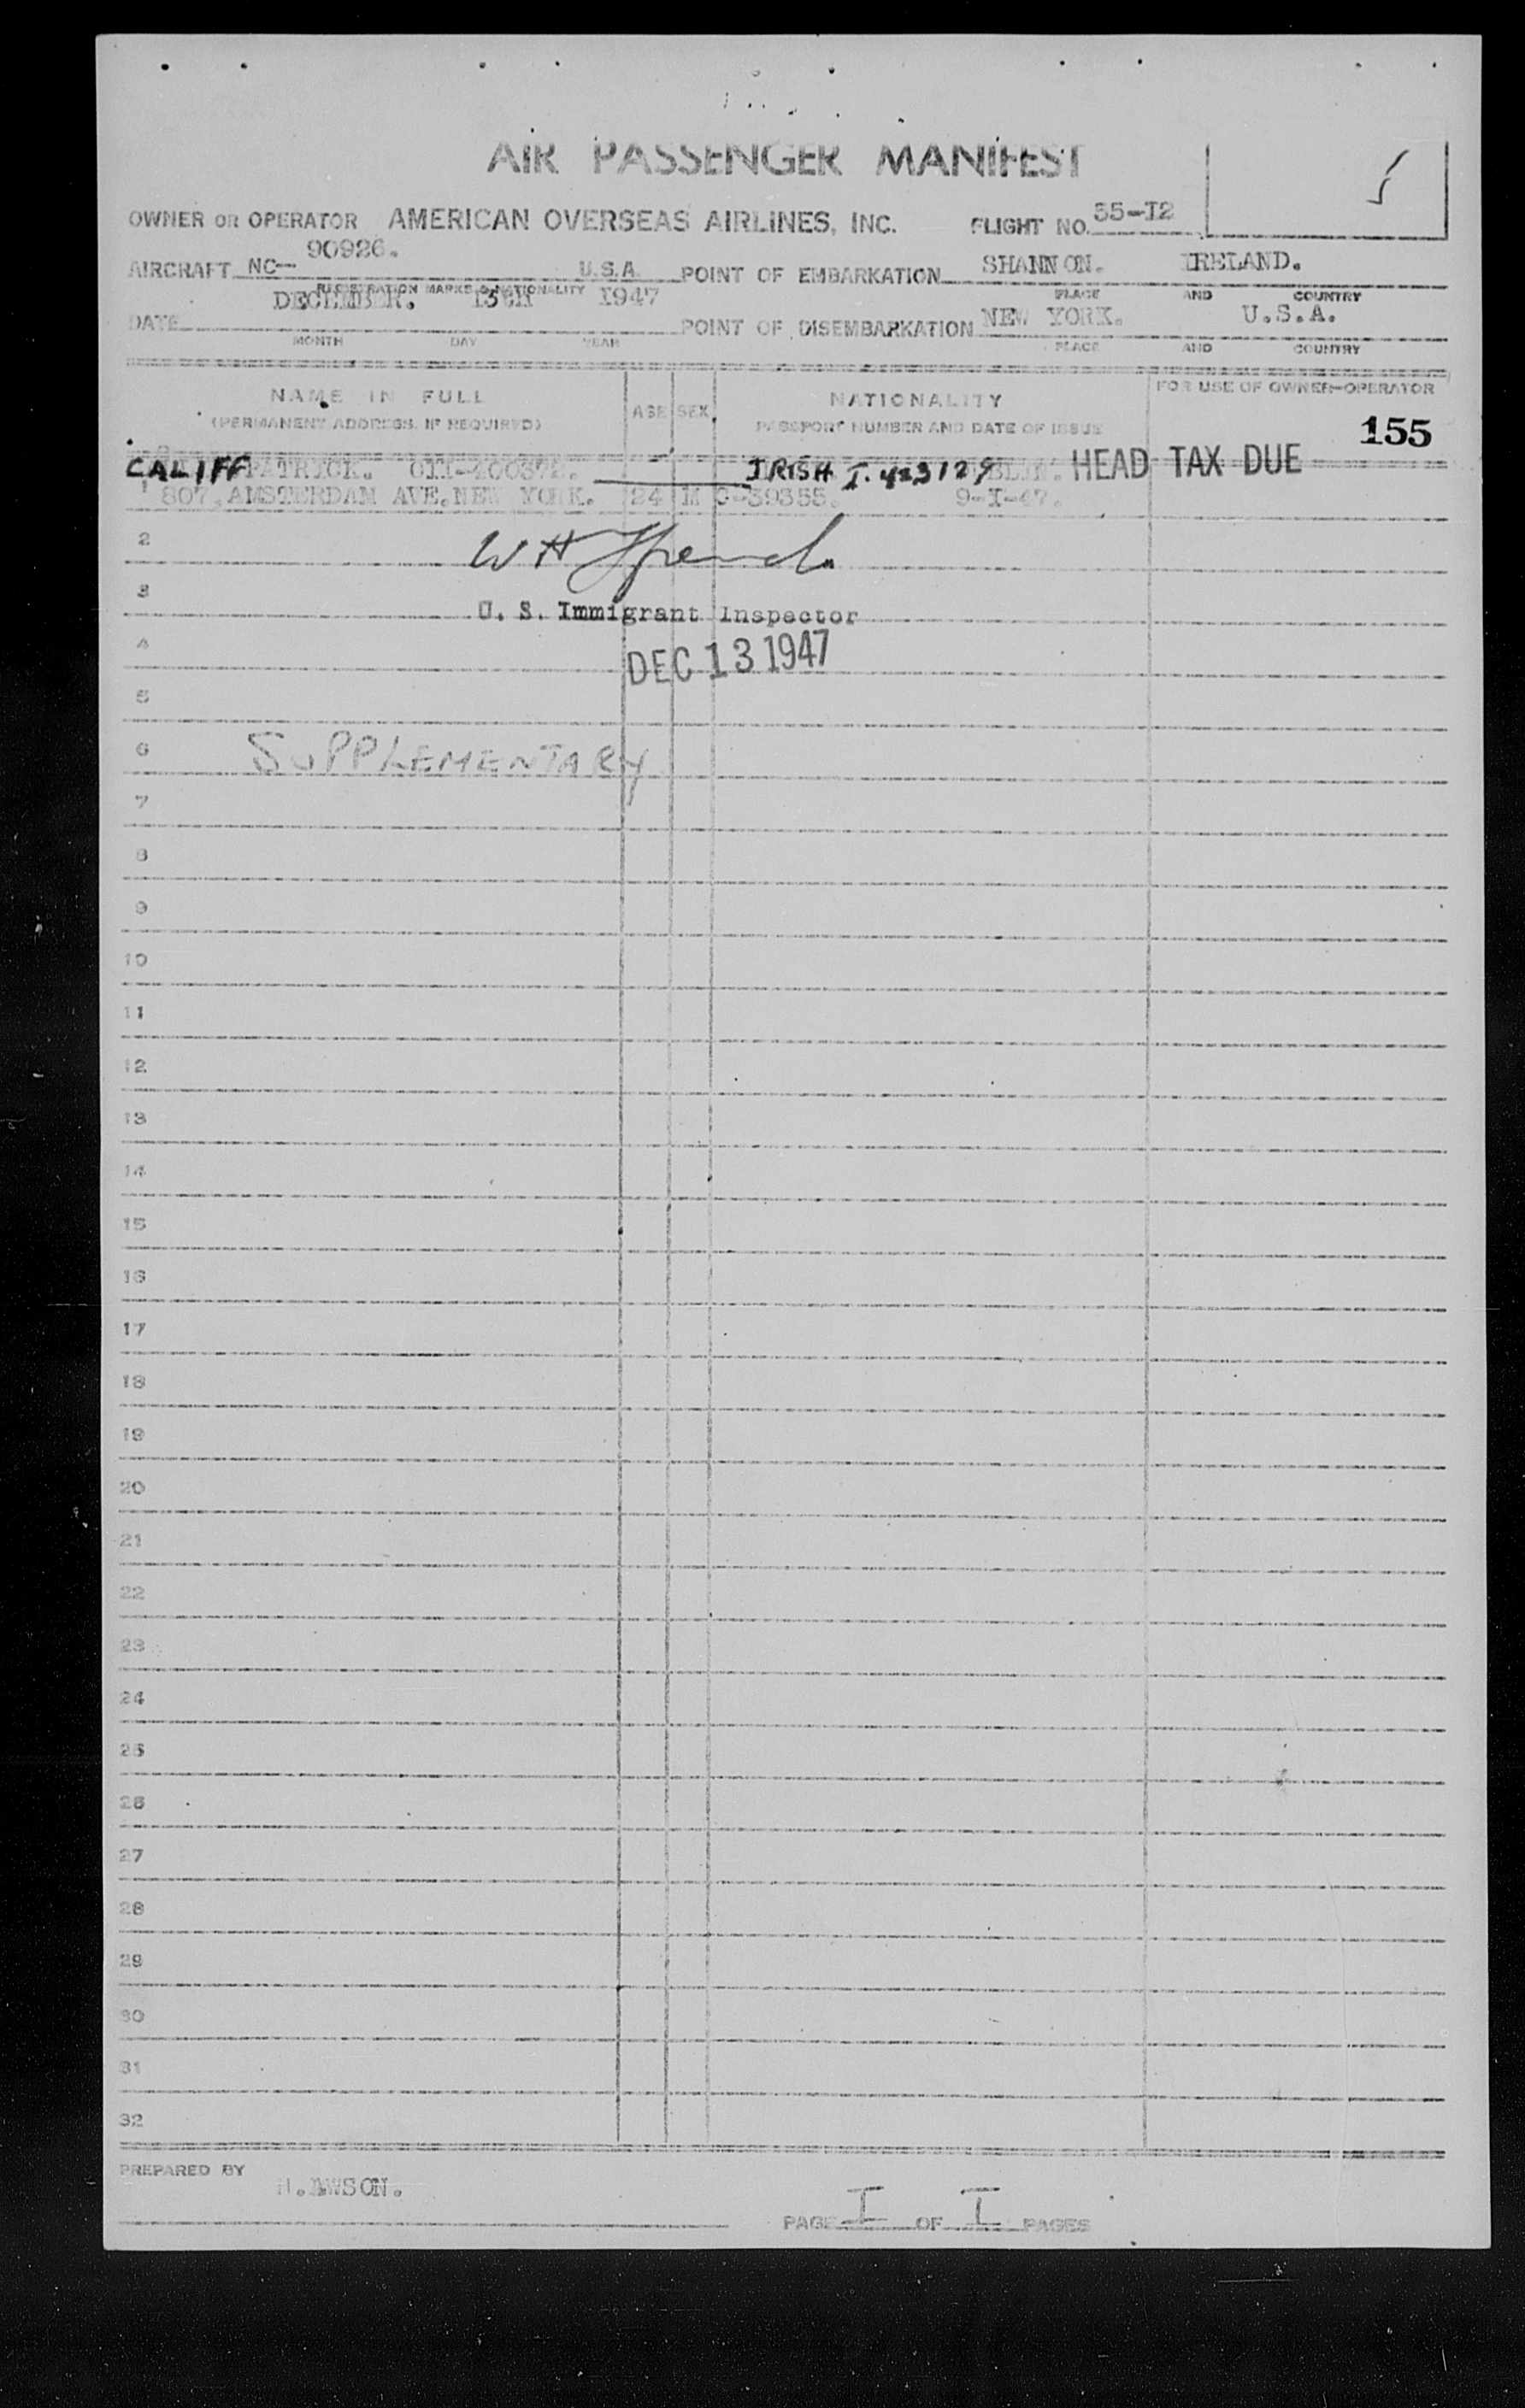 AIR PASSENGER MANIFEST
OWNER OR OPERATOR AMERICAN OVERSEAS AIRLINES, INC. FLIGHT NO. 55-I2
AIRCRAFT NC- 90926. U.S.A. POINT OF EMBARKATION SHANNON. IRELAND.
REGISTRATION MARKS & NATIONALITY PLACE AND COUNTRY
DATE DECEMBER. 1947 POINT OF DISEMBARKATION NEW YORK. U.S.A.
MONTH DAY YEAR PLACE AND COUNTRY
NAME IN FULL AGE SEX NATIONALITY FOR USE OF OWNER-OPERATOR
(PERMANENT ADDRESS, IF REQUIRED) PASSPORT NUMBER AND DATE OF ISSUE
155
CALIFF PATRICK. IRISH HEAD TAX DUE
1 807, AMSTERDAM AVE, NEW YORK. 24 M C-39355. 9-I-47.
2
3
U. S. Immigrant Inspector
4
DEC 13 1947
5
6 SUPPLEMENTARY
7
8
9
10
11
12
13
14
15
16
17
18
19
20
21
22
23
24
25
26
27
28
29
30
31
32
PREPARED BY
PAGE I OF I PAGES